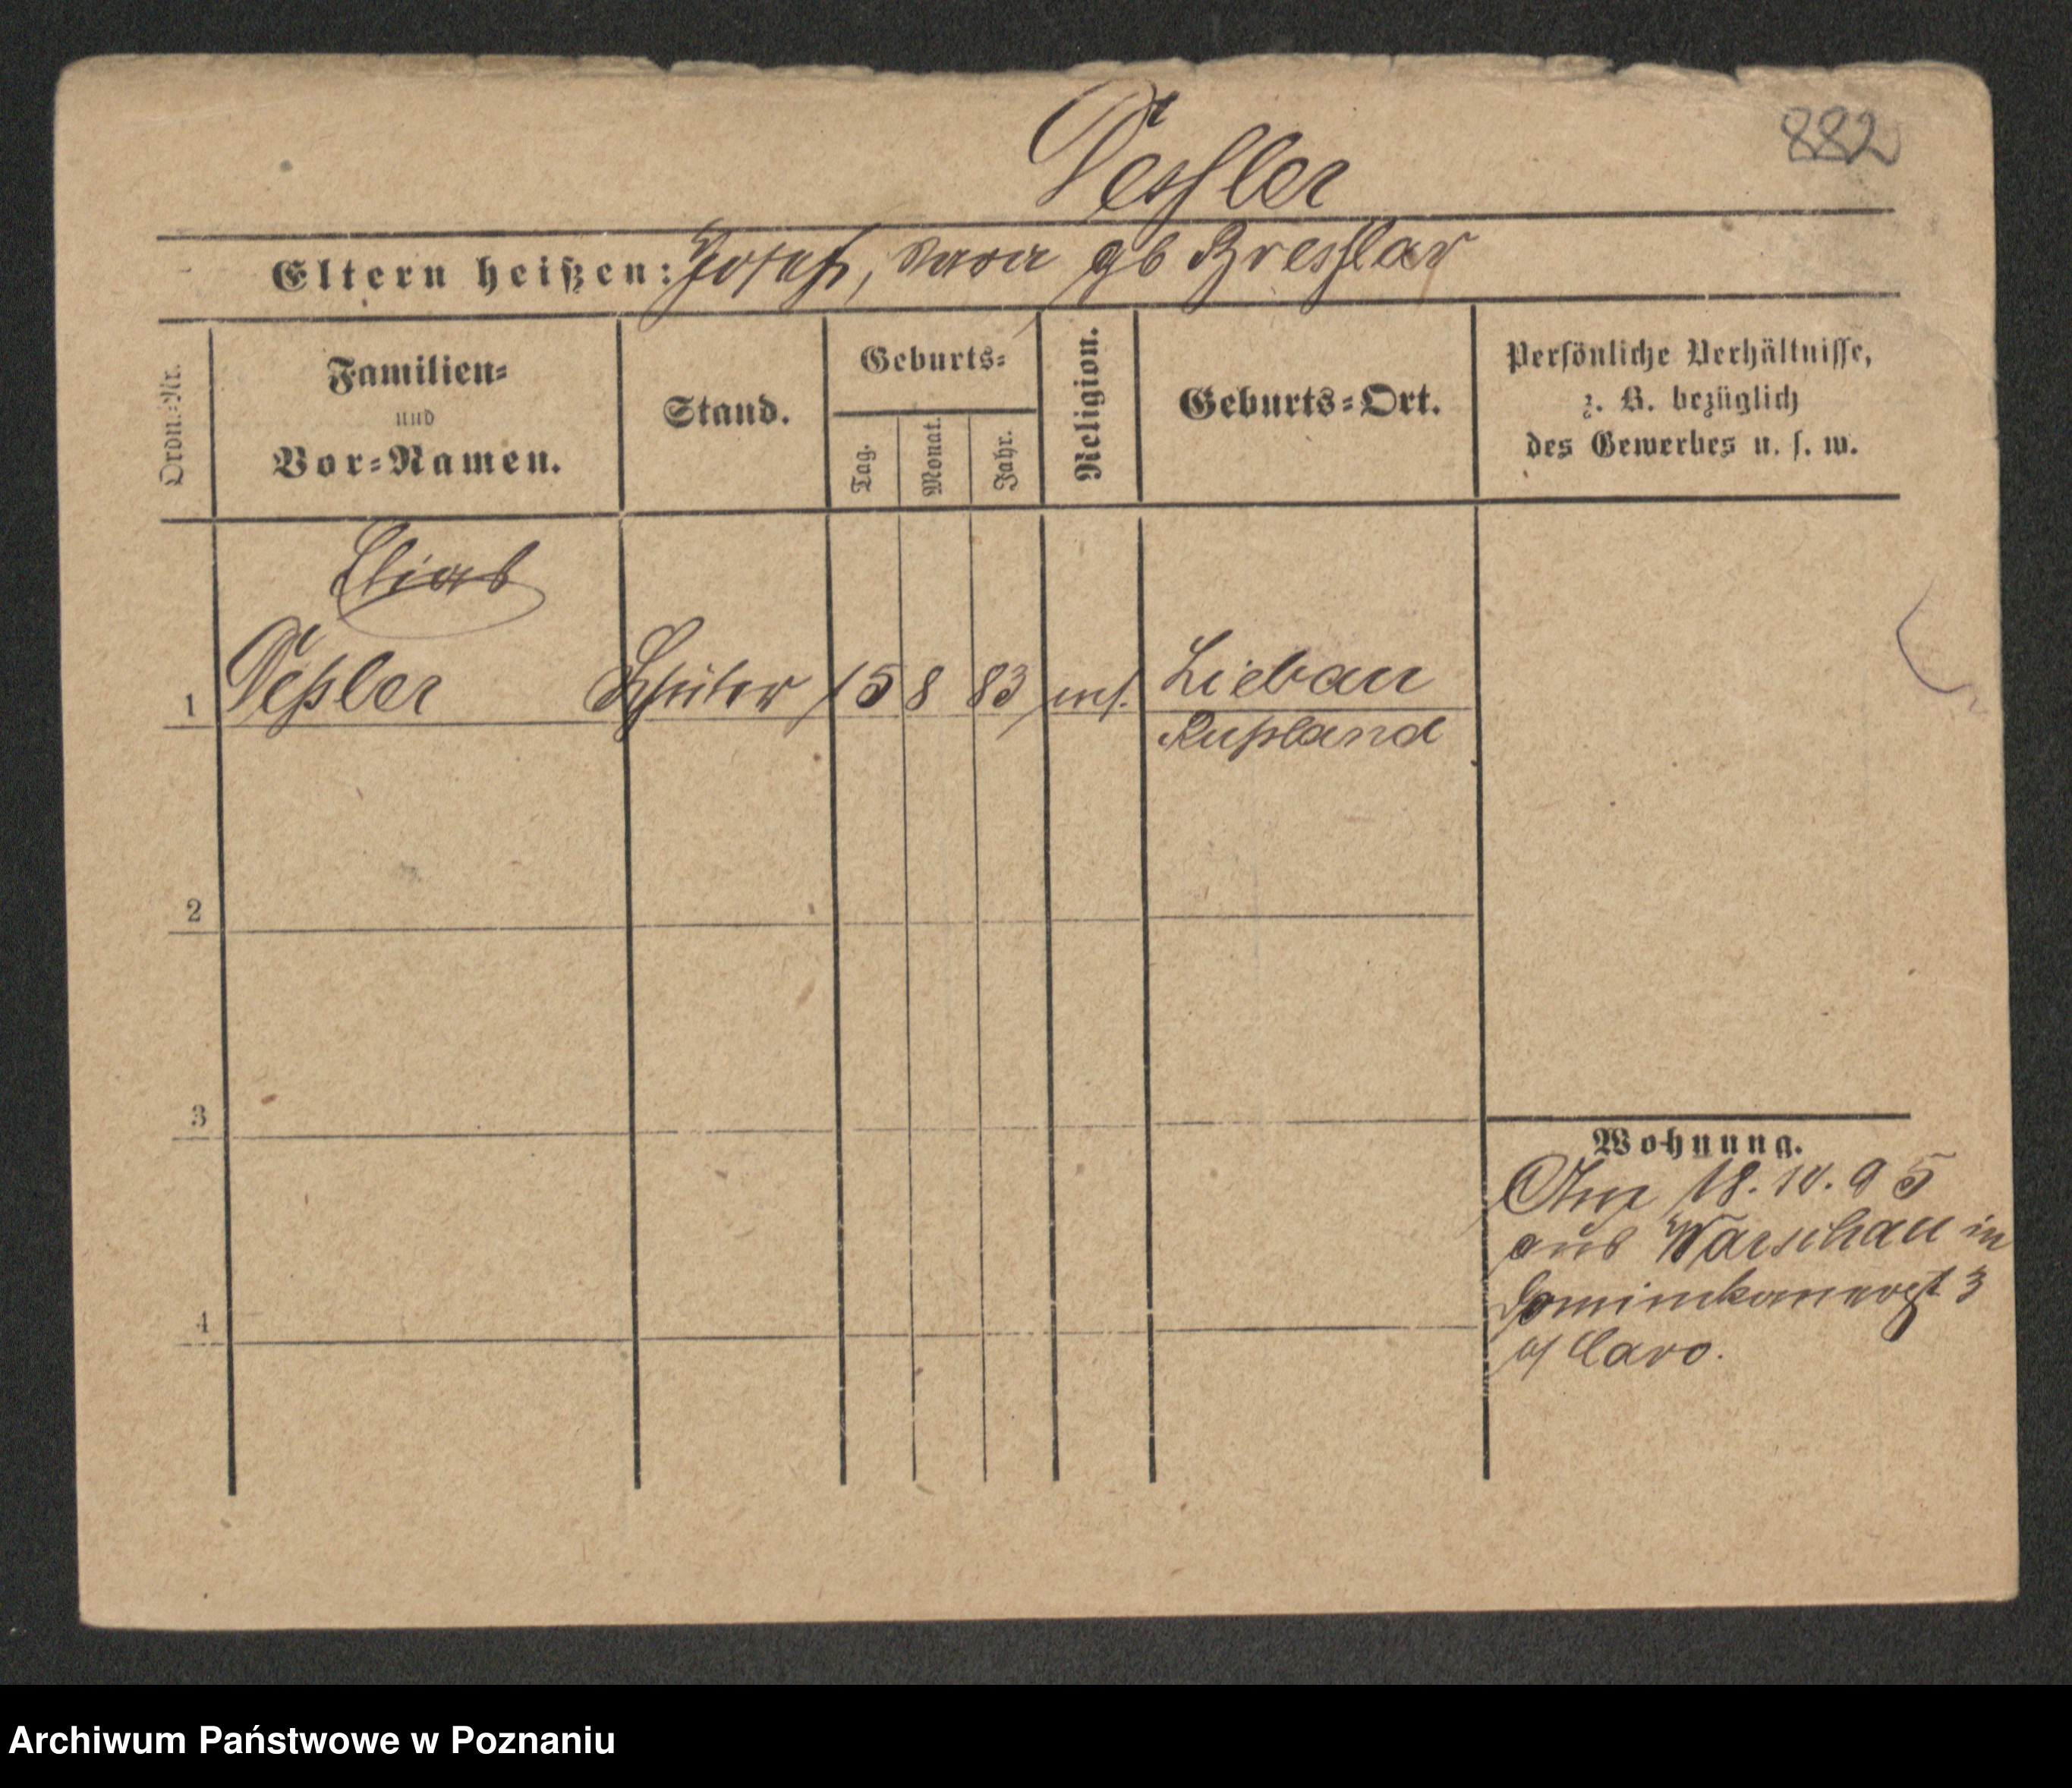 882
Peßler
Eltern heißen: Josef, Sara gb Bresslar
Ordn.-Nr.
Familien-
und
Vor-Namen.
Stand.
Geburts-
Tag.
Monat.
Jahr.
Religion.
Geburts-Ort.
Persönliche Verhältnisse,
z. B. bezüglich
des Gewerbes u. s. w.
Elias
1 Peßler Schüler 15 8 83 mos. Liebau
Rußland
2
3
4
Wohnung.
18.10.95
aus Warschau in
Dominikanergst 3
b/ Caro.
Archiwum Państwowe w Poznaniu